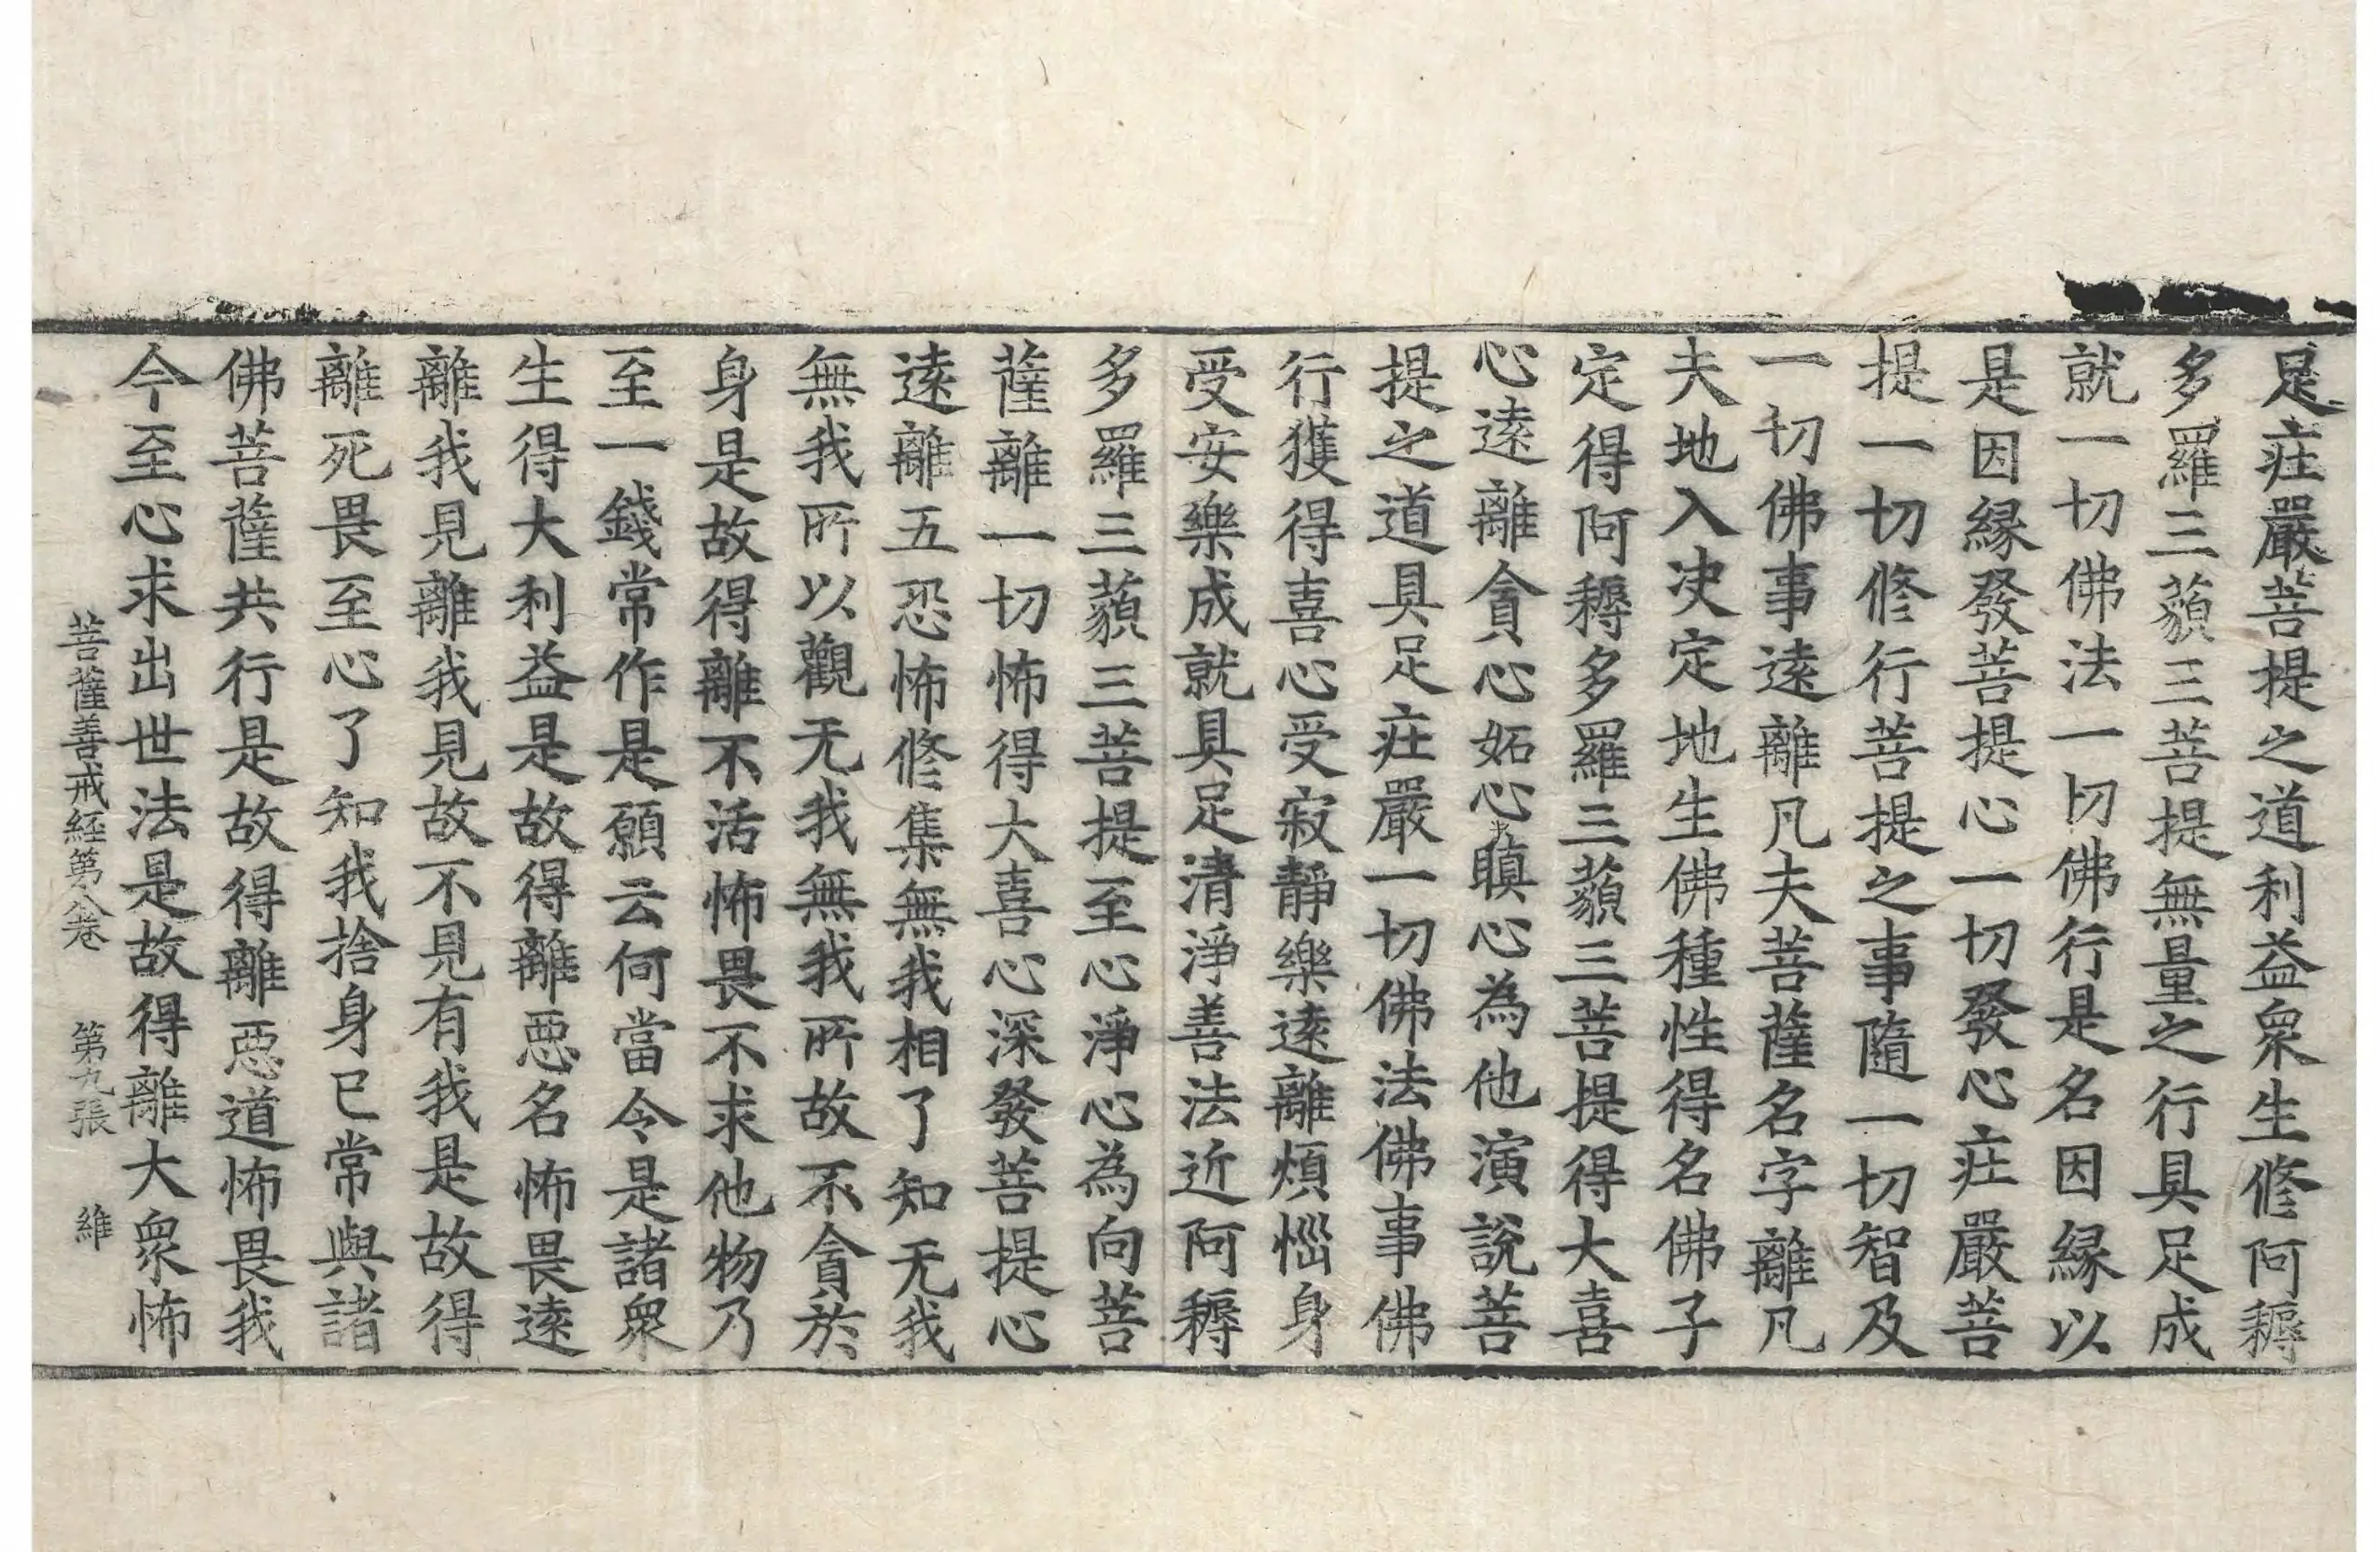 是莊嚴菩提之道利益衆生修阿耨
多羅三藐三菩提無量之行具足成
就一切佛法一切佛行是名因緣以
是因緣發菩提心一切發心莊嚴菩
提一切修行菩提之事隨一切智及
一切佛事遠離凡夫菩薩名字離凡
夫地入決定地生佛種性得名佛子
定得阿耨多羅三藐三菩提得大喜
心遠離貪心妬心瞋心為他演說菩
提之道具足莊嚴一切佛法佛事佛
行獲得喜心受寂靜樂遠離煩惱身
受安樂成就具足清淨善法近阿耨
多羅三藐三菩提至心淨心為向菩
薩離一切怖得大喜心深發菩提心
遠離五恐怖修集無我相了知无我
無我所以觀无我無我所故不貪於
身是故得離不活怖畏不求他物乃
至一錢常作是願云何當令是諸衆
生得大利益是故得離惡名怖畏遠
離我見離我見故不見有我是故得
離死畏至心了知我捨身已常與諸
佛菩薩共行是故得離惡道怖畏我
今至心求出世法是故得離大衆怖
菩薩善戒經第八卷 第九張 維